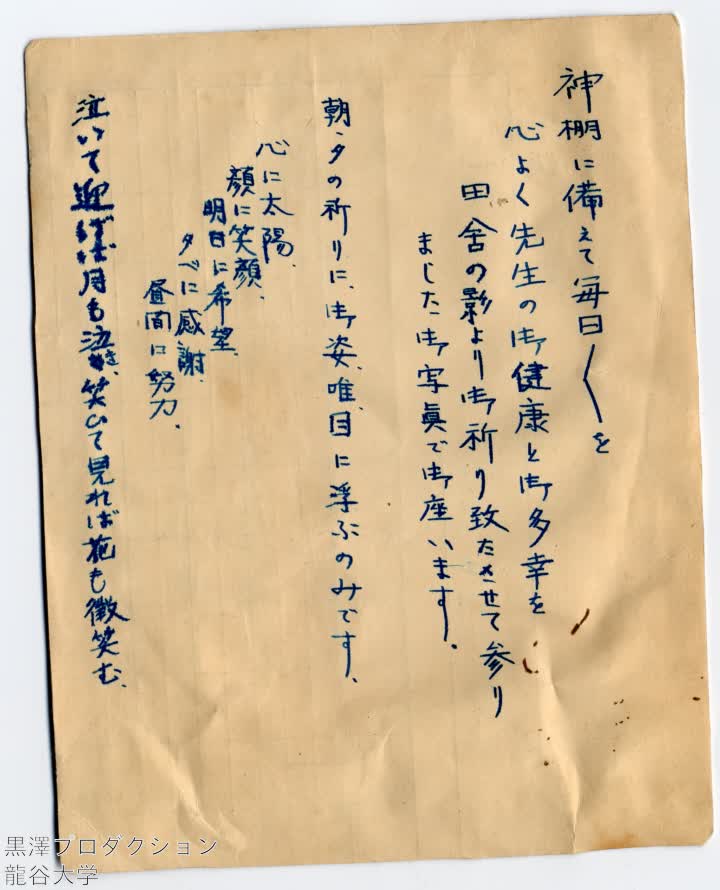 神棚に備えて毎日〱を
心よく先生の御健康と御多幸を
田舎の影より御祈り致たさせて参り
ました御写眞で御座います。
朝夕の祈りに、御姿、唯、目に浮ぶのみです、
心に太陽、
顔に笑顔、
明日に希望、
夕べに感謝、
昼間に努力、
泣いて迎げば月も泣き、笑ひて見れば花も微笑む、
黒澤プロダクション
龍谷大学